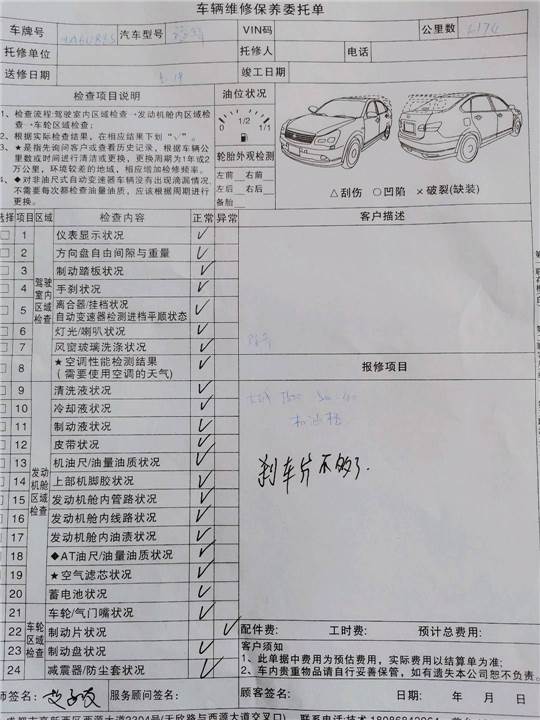 车辆维修保养委托单
车牌号 汽车型号 VIN码 公里数
托修单位 托修人 电话
送修日期 竣工日期
检查项目说明
1、检查流程:驾驶室内区域检查→发动机舱内区域检
查→车轮区域检查;
2、根据实际检查结果，在相应结果下划“√”。
3、★是指先询问客户或查看历史记录，根据车辆公
里数或时间进行清洁或更换，更换周期为1年或2
万公里，环境较差的地域，相应增加检修频率。
4、◆对非油尺式自动变速器车辆没有出现滴漏情况，
不需要每次都检查油量油质，应该根据周期进行
更换。
油位状况
0 1/2 1/1
轮胎外观检测
左前 右前
左后 右后
备胎
△刮伤 ○凹陷 ×破裂(缺装)
选择 项目 区域 检查内容 正常 异常 客户描述
驾驶室内区域检查
1 仪表显示状况 ✓
2 方向盘自由间隙与重量 ✓
3 制动踏板状况 ✓
4 手刹状况 ✓
5 离合器/挂档状况
自动变速器检测进档平顺状态 ✓
6 灯光/喇叭状况 ✓
7 风窗玻璃洗涤状况 ✓
8 ★空调性能检测结果
(需要使用空调的天气) ✓
发动机舱区域检查
9 清洗液状况 ✓
10 冷却液状况 ✓
11 制动液状况 ✓
12 皮带状况 ✓
13 机油尺/油量油质状况 ✓
14 上部机脚胶状况 ✓
15 发动机舱内管路状况 ✓
16 发动机舱内线路状况 ✓
17 发动机舱内油渍状况 ✓
18 ◆AT油尺/油量油质状况 ✓
19 ★空气滤芯状况 ✓
20 蓄电池状况 ✓
车轮区域检查
21 车轮/气门嘴状况 ✓
22 制动片状况 ✓
23 制动盘状况 ✓
24 减震器/防尘套状况 ✓
报修项目
机油格
刹车片不够了.
配件费: 工时费: 预计总费用:
客户须知
1、此单据中费用为预估费用，实际费用以结算单为准;
2、车内贵重物品请自行妥善保管，如有遗失本公司恕不负责。
师签名: 服务顾问签名: 顾客签名: 日期: 年 月 日